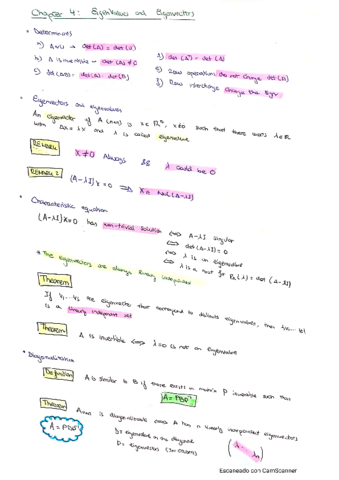 Chapter 4: Eigenvalues and Eigenvectors
• Determinants
a) A~U → det(A) = det(U)
b) A is invertible → det(A) ≠ 0
c) det(AB) = det(A) · det(B)
d) det(Aᵀ) = det(A)
e) Row operation does not change det(A)
f) Row interchange change the sign
• Eigenvectors and eigenvalues
An eigenvector of A (nxn) is x ∈ ℝⁿ, x≠0 such that there exists λ∈ℝ
with Ax = λx and λ is called eigenvalue
REMARK X≠0 Always && λ could be 0
REMARK 2 (A-λI)x = 0 ⟹ x ∈ Nul(A-λI)
• Characteristic equation
(A-λI)x=0 has non-trivial solution ⟺ A-λI singular
⟺ det(A-λI)=0
⟺ λ is an eigenvalue
⟺ λ is a root for = det(A-λI)
* The eigenvectors are always linearly independent
Theorem
If V₁...Vₚ are eigenvectors that correspond to distinct eigenvalues, then
is a linearly independent set
Theorem
A is invertible ⟺ λ=0 is not an eigenvalue
• Diagonalization
Definition
A is similar to B if there exists a matrix P invertible such that
A = PBP⁻¹
Theorem
Anxn is diagonalizable ⟺ A has n linearly independent eigenvectors
A = PDP⁻¹
D= eigenvalues in the diagonal
P= eigenvectors (in columns)
Escaneado con CamScanner